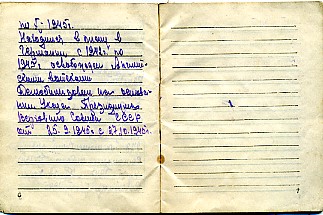 по 5. 1945г.
Находился в плену в
Германии с 1942г по
1945г. освобожден Англий-
скими войсками
Демобилизован на основа-
нии Указа Президиума
Верховного Совета СССР
от 25.9.1945г с 27.10.1945г.
6
7